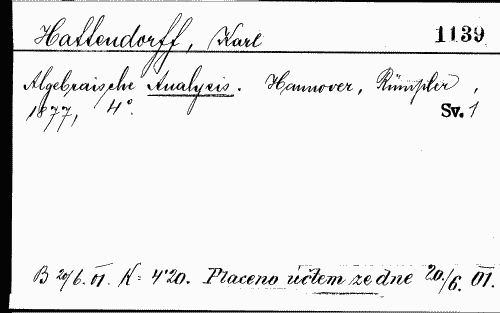 Hattendorff, Karl 1139
Algebraische Analysis. Hannover, Rümpler,
1877, 4°. Sv. 1
B 20/6. 01. K= 4·20. Placeno účtem ze dne 20./6. 01.